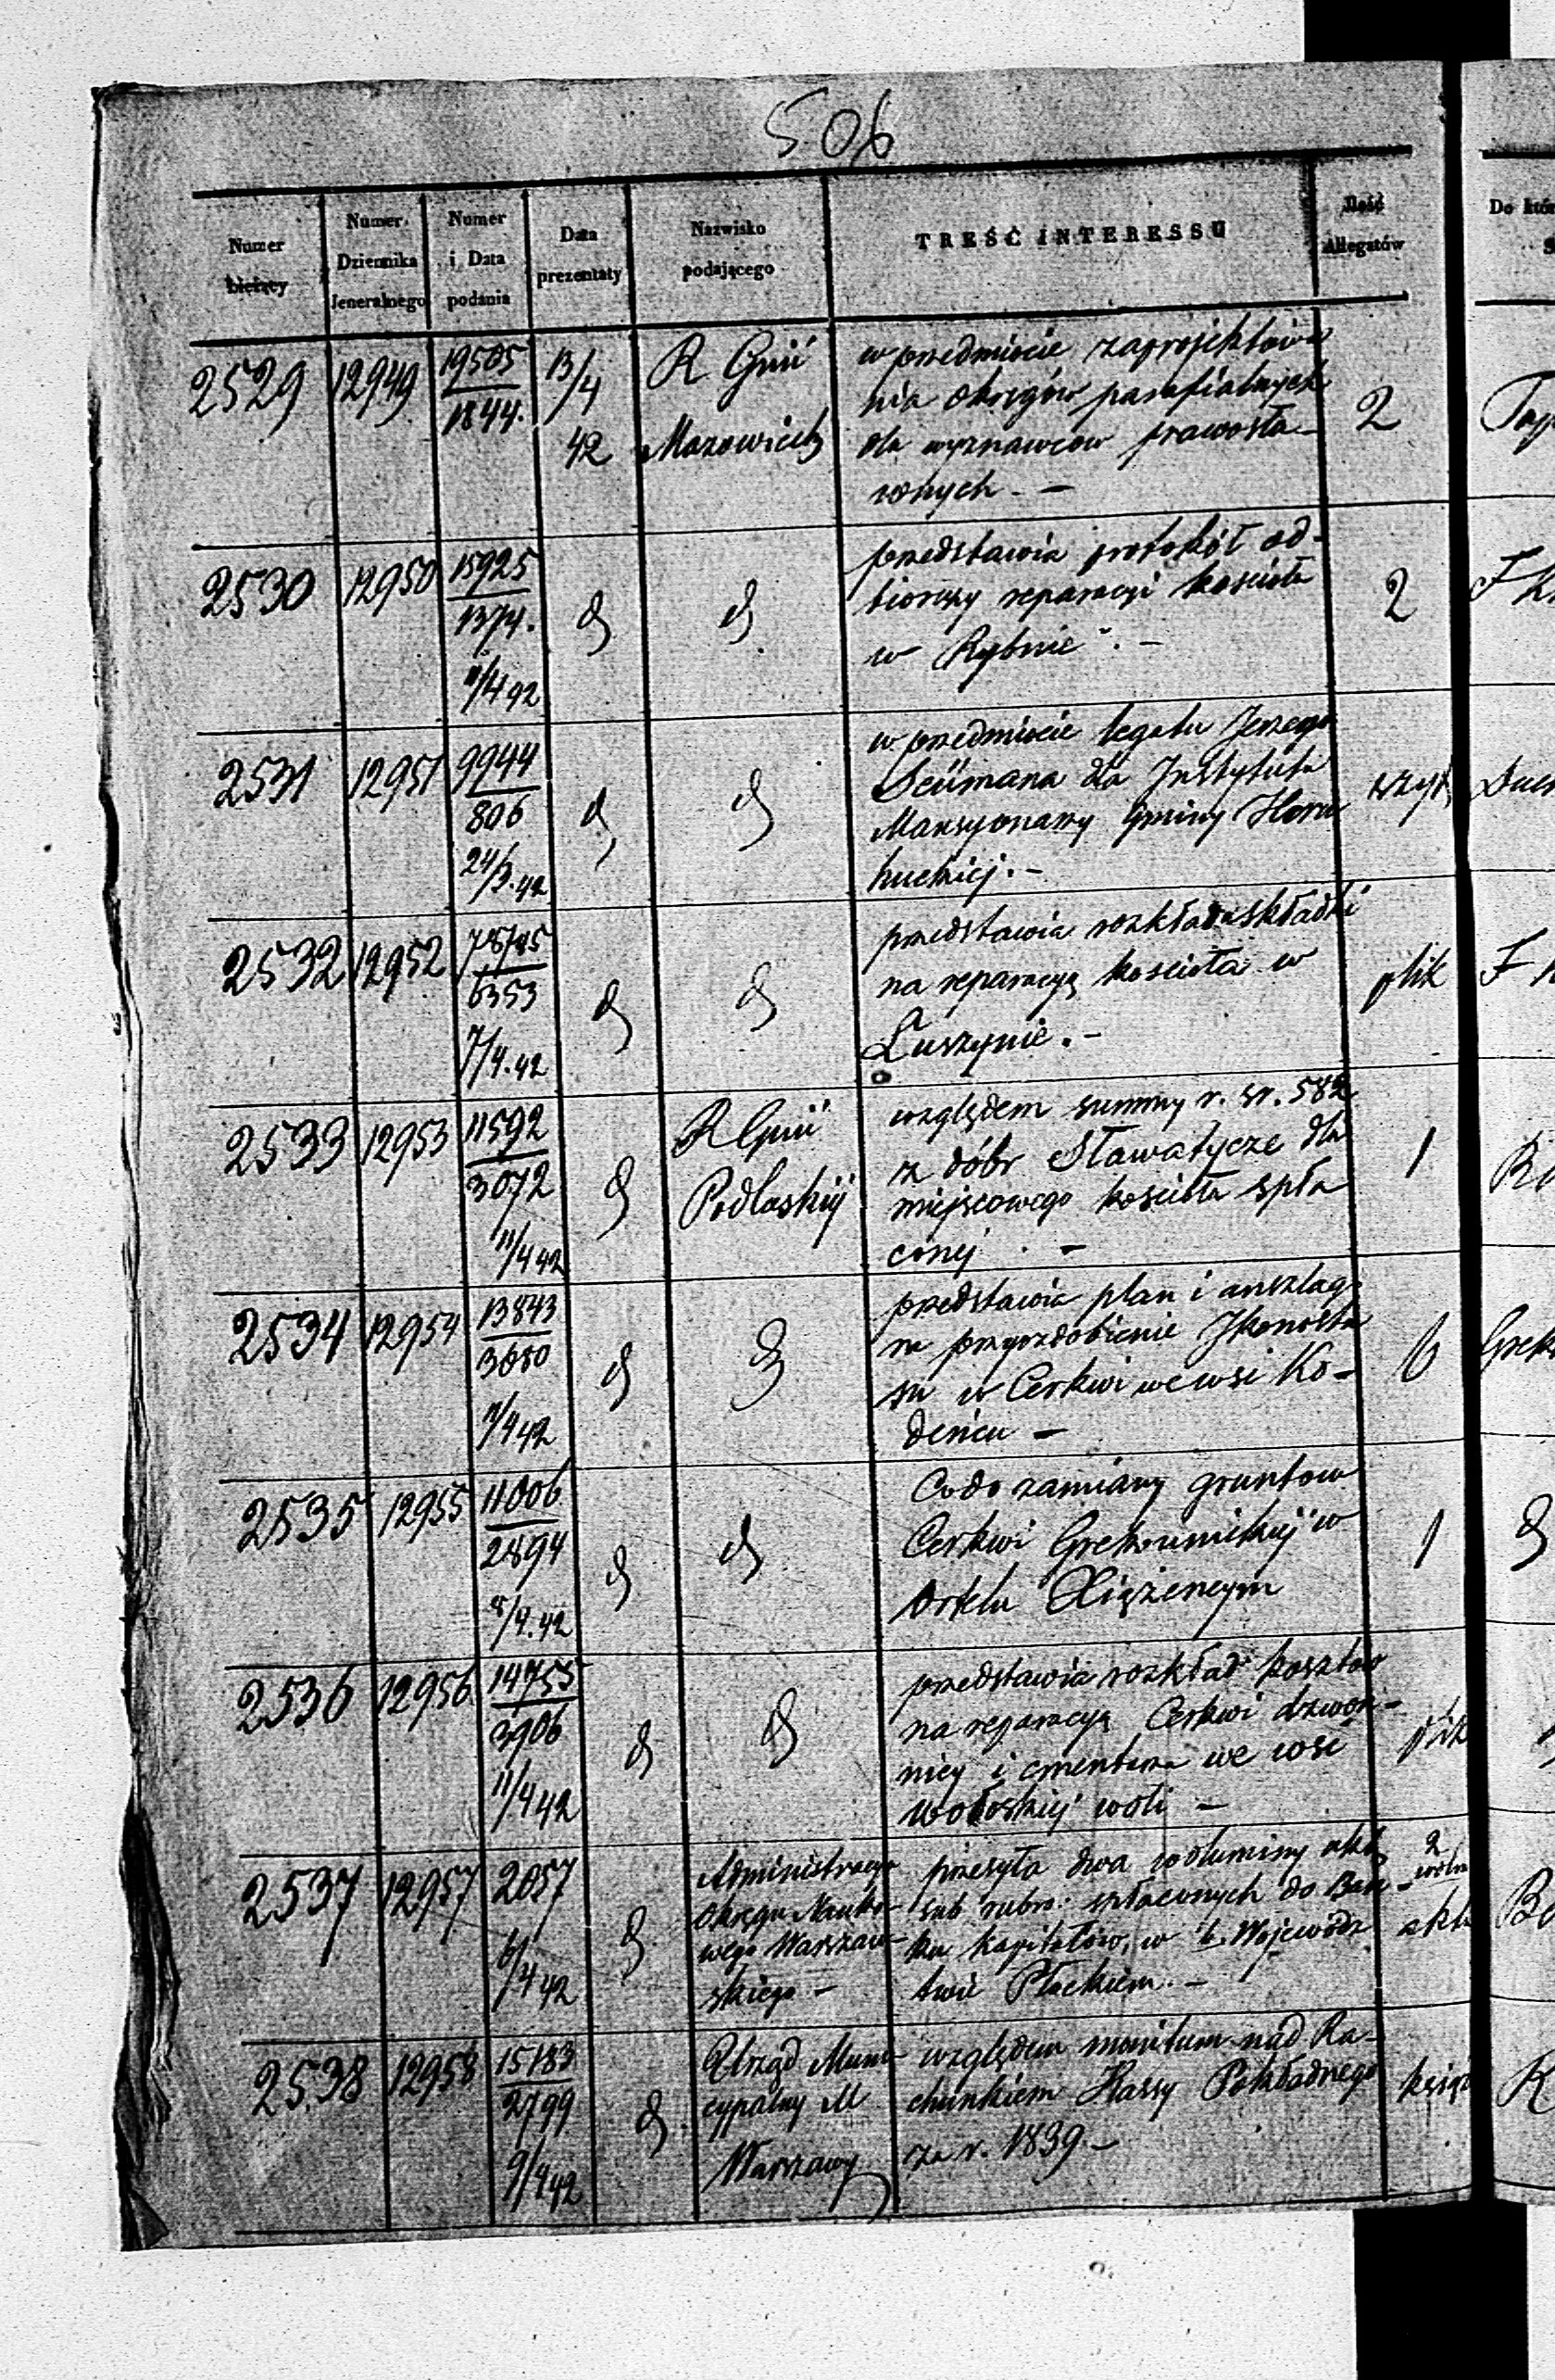 506
Numer bieżący
Numer Dziennika Jeneralnego
Numer i Data podania
Data prezentaty
Nazwisko podającego
TREŚĆ INTERESSU
Ilość Allegatów
2529 12949 19505/1844. 13/4 42 R. Gnii Mazowieck
w przedmiocie zaprojektowa
nia okręgów parafialnych
dla wyznawcow prawosła-
wnych. —
2
2530 12950 15925/1374. 11/4 42
przedstawia protokół od-
biorczy reparacyi kościoła
w Rybnie. —
2
2531 12951 9944/806 24/3.42
w przedmiocie legatu Jerzego
dla Instytutu
Gminy
huckiej. —
2532 12952 6353 7/4.42
przedstawia rozkład składki
na reparacyą kościoła w
Łuszynie. —
plik
2533 12953 11592/3072 11/4 42 R Gnii Podlaskij
względem summy r. sr. 582
z dóbr Sławatycze dla
miejscowego kościoła spła
conej. —
1
2534 12954 13843/3680 11/4 42
przedstawia plan i anszlag
na przyozdobienie Ikonosta
su w Cerkwi we wsi Ko-
deńcu —
6
2535 12955 11006/2894 8/4.42
Co do zamiany gruntow
Cerkwi Grekounickiej w
Ortelu Xiążęcym
1
2536 12956 14755/3906 11/4 42
przedstawia rozkład kosztow
na reparacyą Cerkwi dzwon-
nicy i cmentarza we wsi
Wołoskiej woli —
plik
2537 12957 2057 6/4 42
Administracya
Okręgu Nauko-
wego Warszaw-
skiego —
przesyła dwa woluminy akt
sub rubro: wpłaconych do Ban
ku kapitałów, w b. Wojewódz
twie Płockiem. —
2 wolu akt
2538 12958 15183/2799 9/4 42
Urząd Muni-
cypalny M
Warszawy
względem monitum nad Ra-
chunkiem Kassy Pokładnego
za r. 1839. —